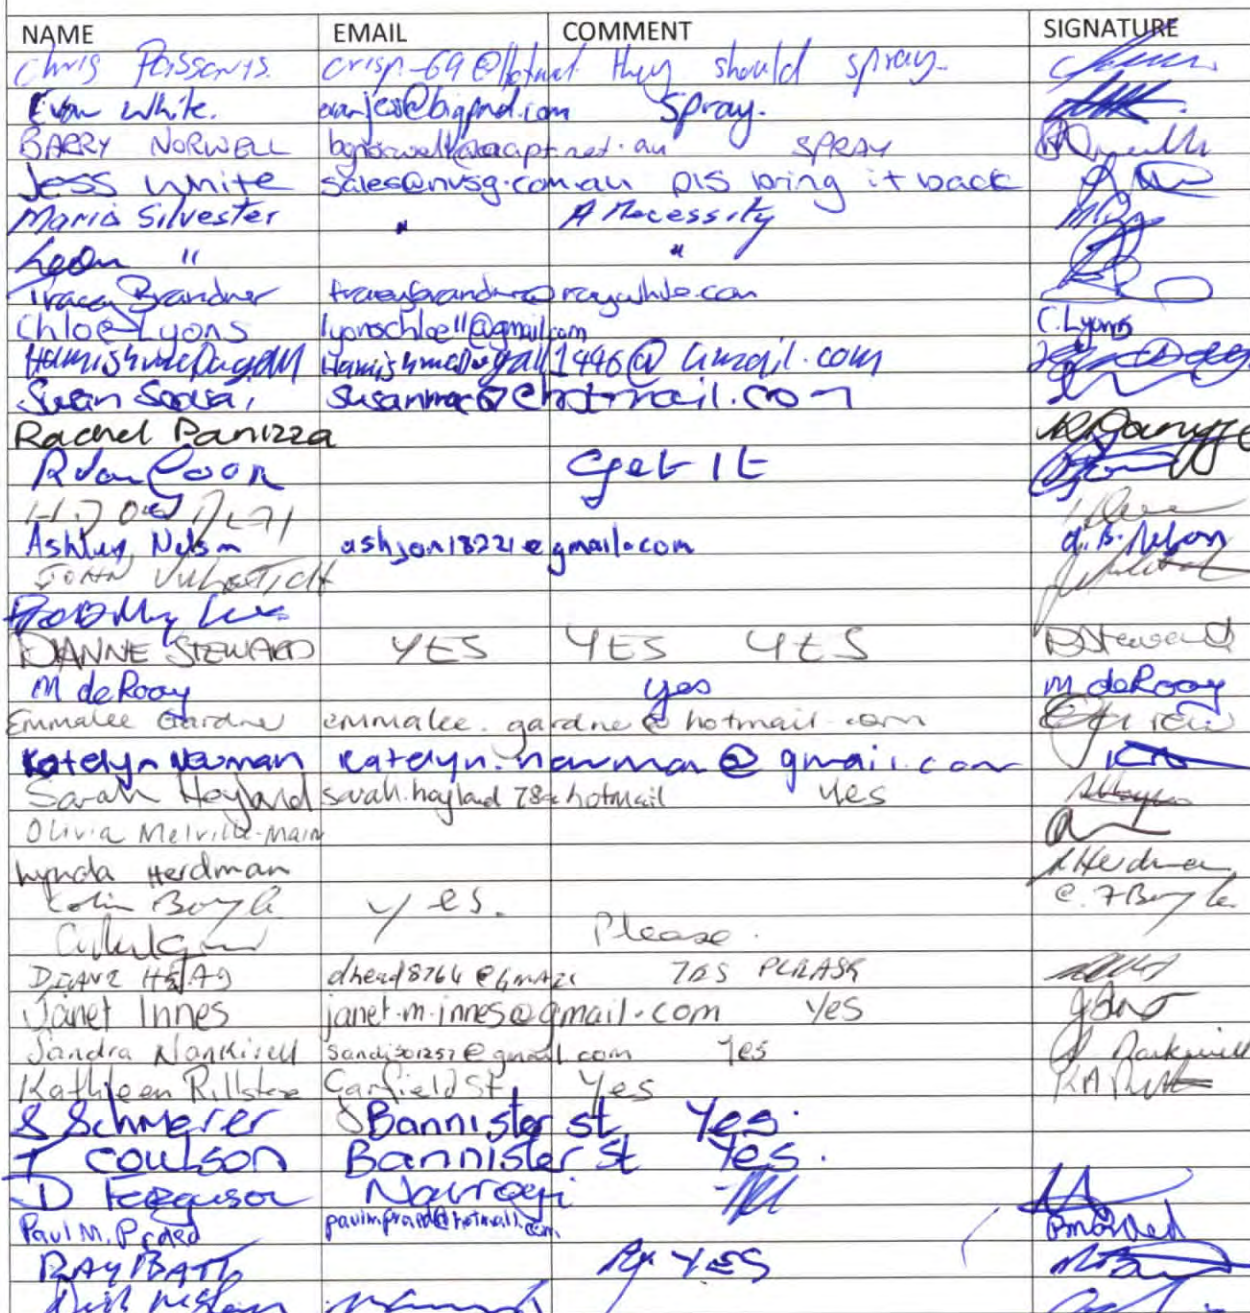 NAME EMAIL COMMENT SIGNATURE
Chris crisp-69@hotmail they should spray.
Evan White. evanjess@bigpond.com Spray.
BARRY NORWELL SPRAY
Jess White sales@nvsg.com.au pls bring it back
Maria Silvester " A Necessity
Leon " "
Tracey Brandner traceybrandner@raywhite.com
Chloe Lyons lyonschloe11@gmail.com C. Lyons
Hamish McDugall Hamishmcdugall1496@Gmail.com
Susan
Rachel Panizza
Get It
Ashley Nelson ashjon18221@gmail.com A.B. Nelson
JOHN
DIANNE STEWARD YES YES YES D Steward
M de Rooy yes M de Rooy
Emmalee Gardne emmalee.gardne@hotmail.com
Katelyn Newman katelyn.newman@gmail.com
Sarah Hoyland sarah.hoyland78@hotmail Yes
Olivia Melville-Main
Lynda Herdman L Herdman
Colin Boyle yes. C. F Boyle
Please.
DIANE HEAD dhead8764@GMAIL YES PLEASE
Janet Innes janet.m.innes@gmail.com Yes
Sandra Nankivell Yes
Kathleen Garfield St Yes
S Schmerer Bannister st Yes.
T COULSON Bannister st Yes.
D Ferguson Narrogin
Paul M.
RAY BATT YES